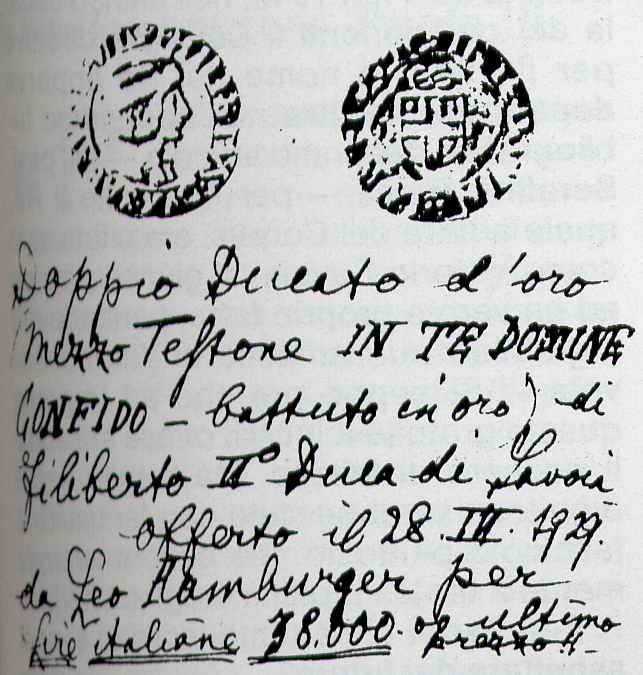 Doppio Ducato d'oro
Mezzo Testone IN TE DOMINE
CONFIDO – battuto in oro) di
Filiberto IIº Duca di Savoia
offerto il 28. III 1929.
da Leo Hamburger per
lire italiane 38.000.00 ultimo
prezzo!!